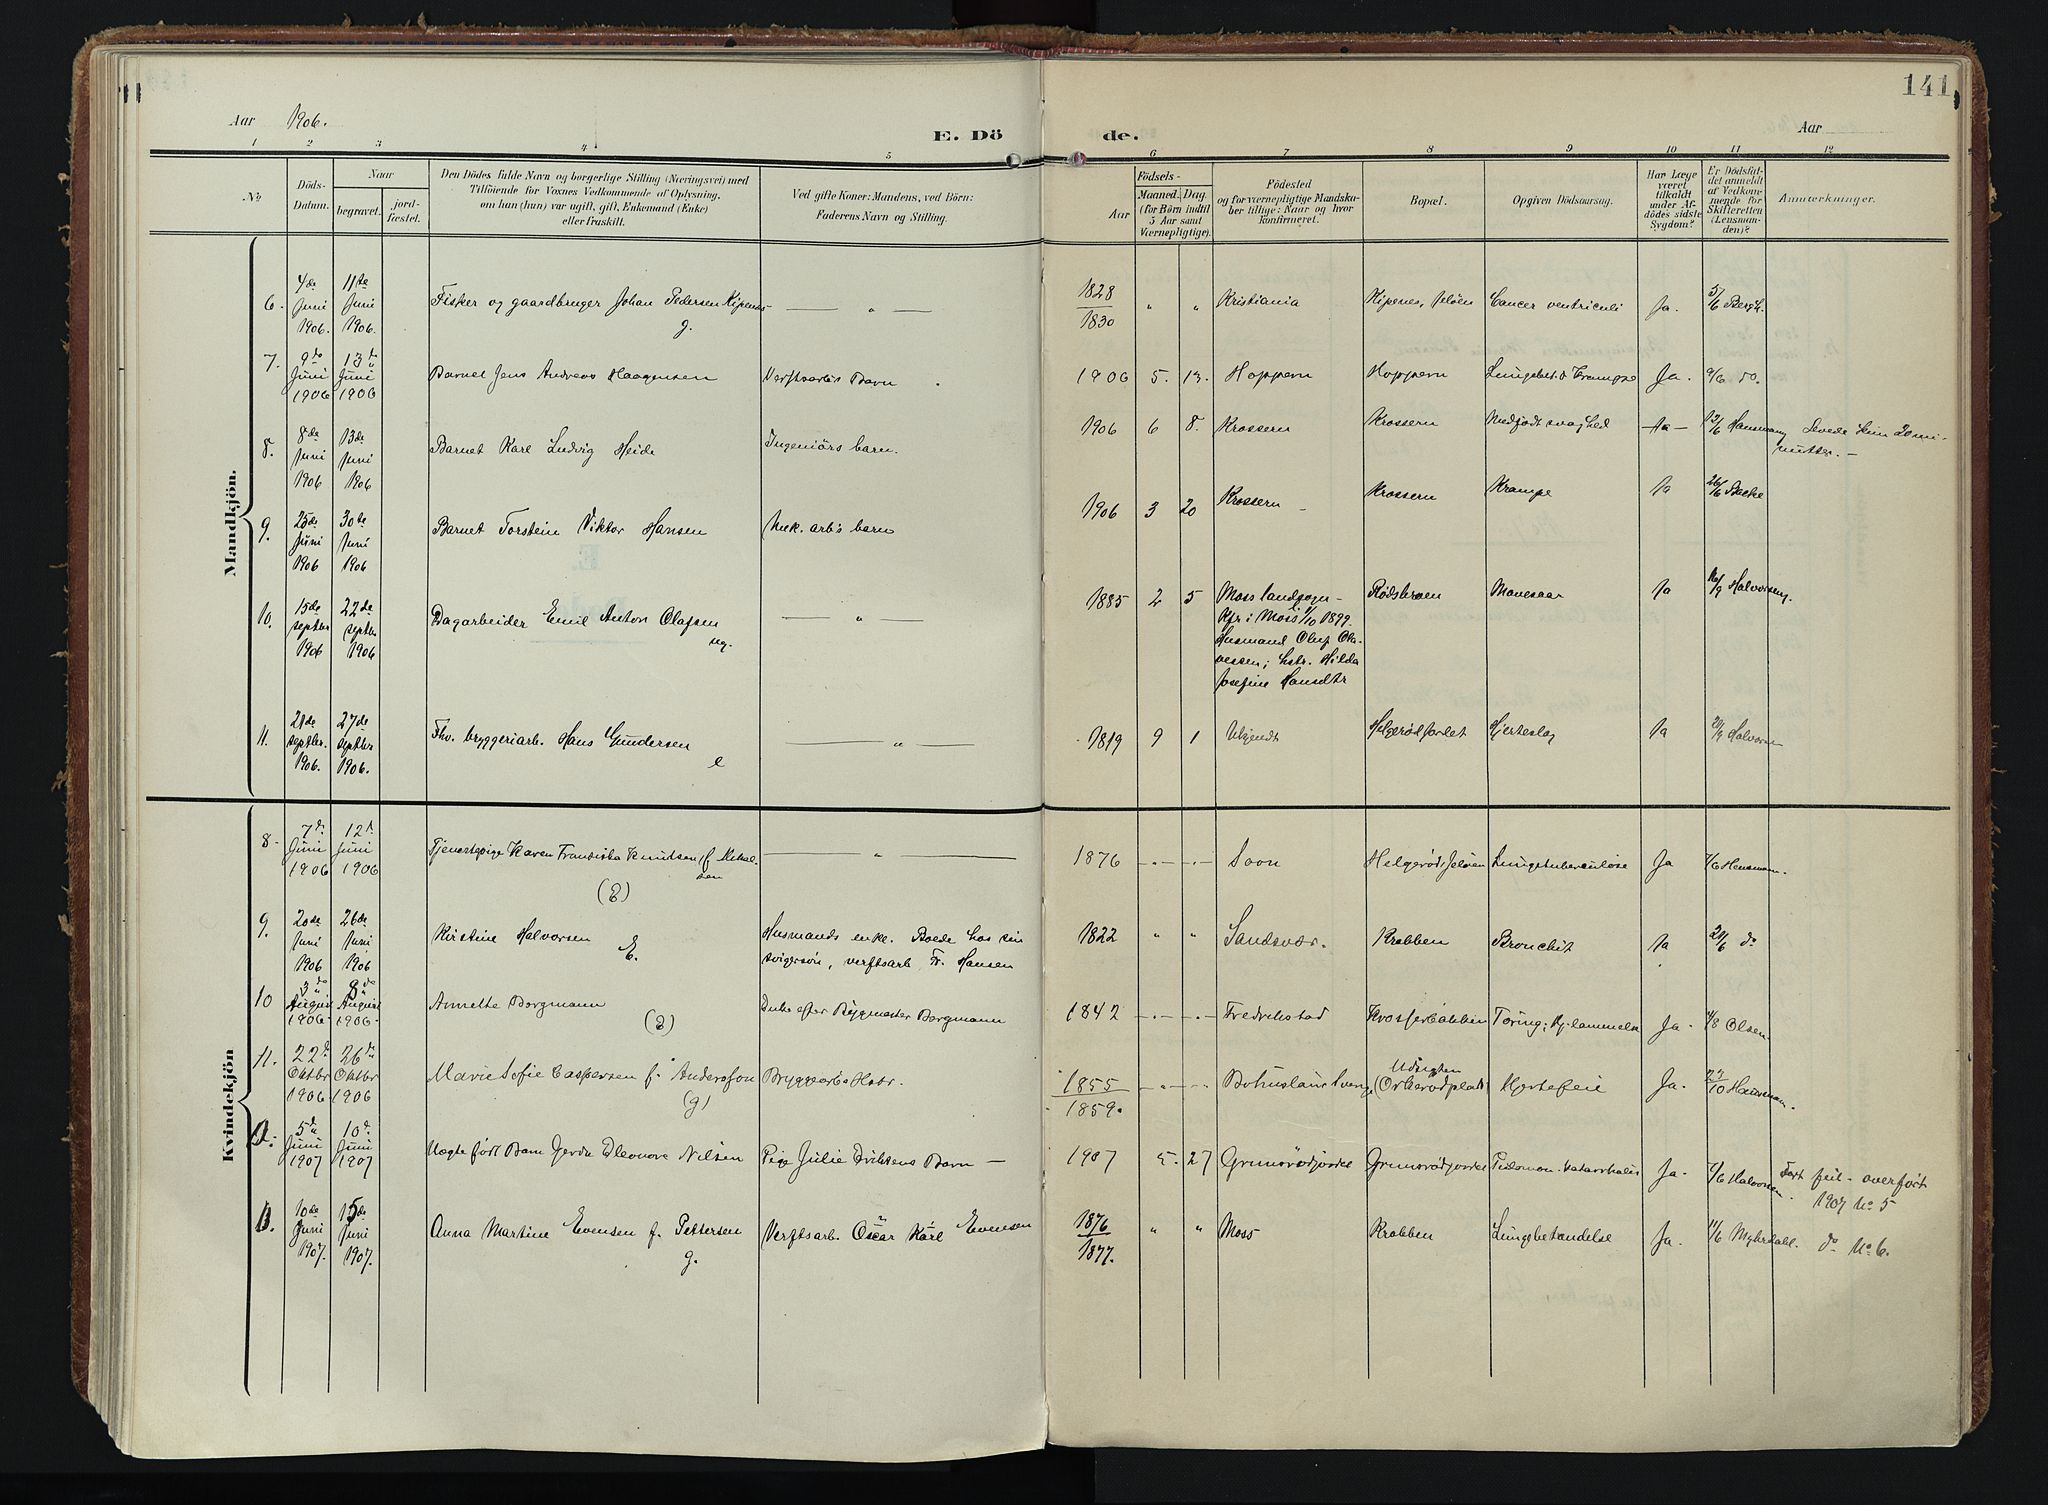 141
Aar 1906.
E. Dö de.
Aar
1 2 3 4 5 6 7 8 9 10 11 12
No
Döds-Datum.
Naar
begravet.
jord-fæstet.
Den Dödes fulde Navn og borgerlige Stilling (Næringsvei) med
Tilföiende for Voxnes Vedkommende af Oplysning,
om han (hun) var ugift, gift, Enkemand (Enke)
eller fraskilt.
Ved gifte Koner: Mandens, ved Börn:
Faderens Navn og Stilling.
Födsels-
Aar
Maaned. Dag.
(for Börn indtil
5 Aar samt
Værnepligtige).
Födested
og for værnepligtige Mandsku-
ber tillige; Naar og hvor
konfirmeret.
Bopæl.
Opgiven Dödsaarsag.
Har Læge
været
tilkaldt
under Af-
dödes sidste
Sygdom?
Er Dödsfal-
det anmeldt
af Vedkom-
mende for
Skifteretten
(Lensman-
den)?
Anmærkninger.
Mandkjön.
6. 4de Juni 1906. 11te Juni 1906. Fisker og gaardbruger Johan Pedersen Kipenes g. — " — 1828/1830 " " Kristiania Kipenes, Jeløen Cancer ventriculi Ja. 5/6 Bergh.
7. 9de Juni 1906 13de Juni 1906 Barnet Jens Andreas Haagensen Verftsarb's Barn 1906 5. 12. Hoppern Hoppern Lungebet. & Krampe Ja. 9/6 do.
8. 8de Juni 1906 13de Juni 1906 Barnet Karl Ludvig Heide Ingeniörs barn. 1906 6 8. Krossern Krossern Medfødt svaghed Ja 12/6 Hansmann Levede kun 20 mi-
nutter. —
9. 25de Juni 1906 30te Juni 1906 Barnet Torstein Viktor Hansen Mek. arb's barn 1906 3 20 Krossern Krossern Krampe Ja 26/6 Bache
10. 15de septbr 1906 22de septbr 1906 Dagarbeider Emil Anton Olafsen ug. — " — 1885 2 5 Moss landsogn —
Kfr. i Moss 1/10 1899.
Husmand Oluf Ol-
uessen; hstr. Hilda
Josefine Hansdtr
Rødsbroen Mavesaar Ja 16/9 Halvorsen.
11. 21de septbr. 1906. 27de septbr 1906. Fhv. bryggeriarb. Hans Gundersen e — " — 1819 9 1 Ukjendt Helgerødjordet Hjerteslag Ja 21/9 Halvorsen
Kvindekjön
8. 7de Juni 1906 12te Juni 1906 Tjenestepige Karen Fransiska Knudsen f. Mikal-
sen
(E) — " — 1876 — " — — " — Soon Helgerød, Jeløen Lungetuberculose Ja 7/6 Hansmann.
9. 20de Juni 1906 26de Juni 1906 Kirstine Halvorsen E. Husmands enke. Boede hos sin
svigersøn, verftsarb. Fr. Hansen
1822 " " Sandsvær. Krabben Bronchit Ja 21/6 do
10 3de August 1906 8de August 1906 Annette Borgmann (E) Enke efter Bygmester Borgmann 1842 — " — — " — Fredrikstad Krosserbakken Tæring; Hj. lammelse Ja. 4/8 Olsen
11. 22de Oktbr 1906 26de Oktbr 1906 Marie Sofie Caspersen f. Andersson (g) Bryggearb's Hstr. 1855/1859. — " — — " — Bohuslän Sverige Udsigten
(Orkerødplads) Hjertefeil Ja. 23/10 Hansmann.
5te Juni 1907 10de Juni 1907 Uægte født Barn Gerda Eleonora Nilsen Pige Julie Eriksens Barn — 1907 5. 27 Grimsrødjordet Grimsrødjordet Pnevmon. katarrhalis Ja. 7/6 Halvorsen. Ført feil — overført
1907 No 5
10de Juni 1907. 15de Juni 1907. Anna Martine Evensen f. Pettersen g. Verftsarb. Oscar Karl Evensen 1876/1877. " " Moss Krabben Lungebetændelse Ja. 11/6 Myhrdahl. do No 6.